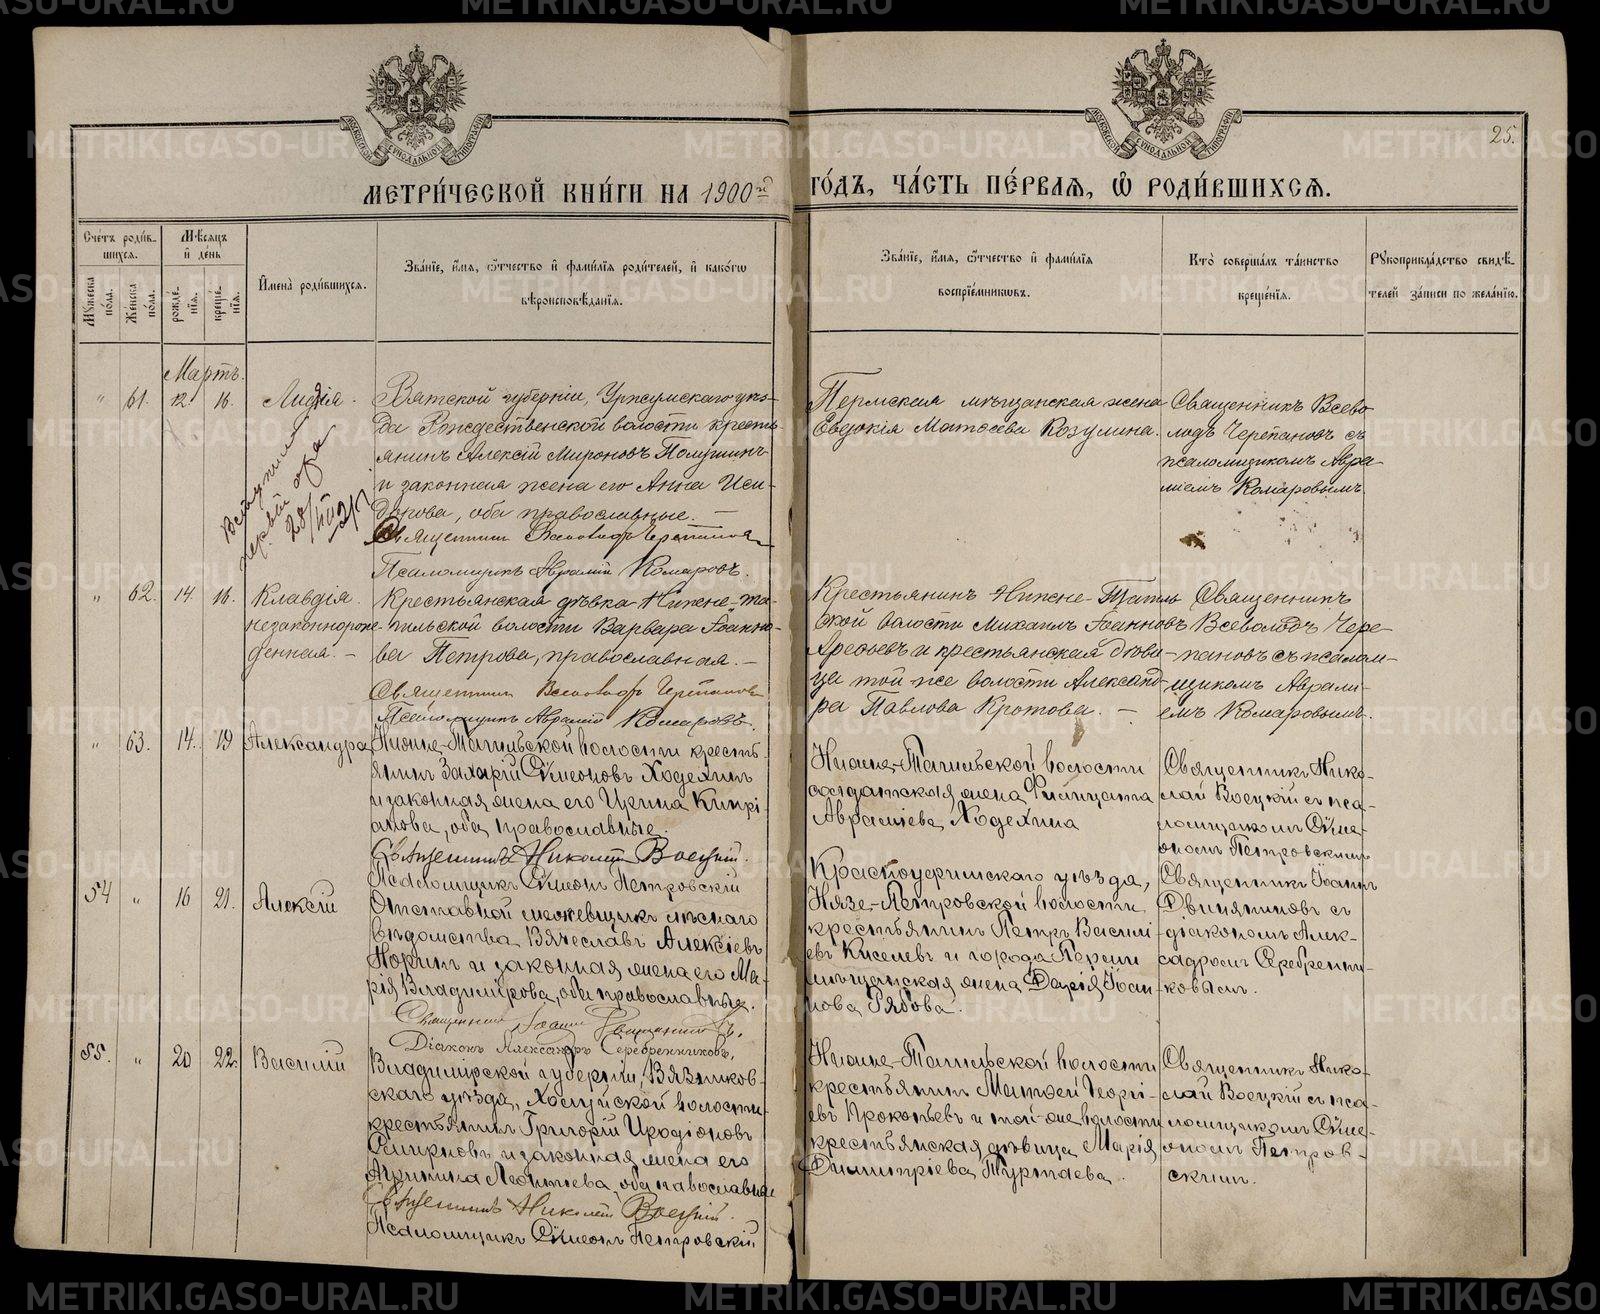 25.
МОСКОВСКОЙ СУНОДАЛЬНОЙ ТИПОГРАФІИ
МЕТРИ́ЧЕСКОЙ КНИ́ГИ НА 1900й ГО́ДЪ, ЧА́СТЬ ПЕ́РВАѦ, Ѽ РОДИ́ВШИХСѦ.
Сче́тъ роди́в-
шихся.
Мѣ́сяцъ
и҆ де́нь
Мꙋ́жеска по́ла.
Же́нска по́ла.
рожде́-нїѧ.
креще́-нїѧ.
И҆мена̀ роди́вшихсѧ.
Зва́нїе, и҆́мѧ, ѻ҆́тчество и҆ фами́лїѧ роди́телей, и҆ како́гѡ
вѣроисповѣ́данїѧ.
Зва́нїе, и҆́мѧ, ѻ҆́тчество и҆ фами́лїѧ
воспрїе́мникѡвъ.
Кто̀ соверша́лъ та́инство
креще́нїѧ.
Рꙋкоприкла́дство свидѣ́-
телей за́писи по жела́нїю.
Мартъ.
" 61. 12. 16. Лидія.
Вятской губерніи, Уржумскаго уѣз-
да Рождественской волости кресть-
янинъ Алексій Мироновъ
и законная жена его Анна Иси-
дорова, оба православные. —
Священникъ Всеволодъ Черепановъ
Псаломщикъ Аврамій Комаровъ.
Пермская мѣщанская жена
Евдокія Матѳеева Козулина.
Священникъ Всево-
лодъ Черепановъ съ
псаломщикомъ Авра-
міемъ Комаровымъ.
" 62. 14. 16. Клавдія.
незаконнорож-
денная. —
Крестьянская дѣвка Нижне-Та-
гильской волости Варвара Іоанно-
ва Петрова, православная. —
Священникъ Всеволодъ Черепановъ
Псаломщикъ Аврамій Комаровъ.
Крестьянинъ Нижне-Тагиль-
ской волости Михаилъ Іоанновъ
Арефьевъ и крестьянская дѣви-
ца той же волости Александ-
ра Павлова Кротова. —
Священникъ
Всеволодъ Чере-
пановъ съ псалом-
щикомъ Аврамі-
емъ Комаровымъ.
" 63. 14. 19 Александра
Нижне-Тагильской волости кресть-
янинъ Захарій Сѵмеоновъ Ходехинъ
и законная жена его Ирина Кипрі-
анова, оба православные.
Священникъ Николай Воецкій.
Псаломщикъ Сѵмеонъ Петровскій
Нижне-Тагильской волости
солдатская жена
Авраміева Ходехина
Священникъ Нико-
лай Воецкій съ пса-
ломщикомъ Сѵме-
ономъ Петровскимъ
54 " 16 21. Алексій
Отставной межевщикъ лѣснаго
вѣдомства Вячеславъ Алексіевъ
Норинъ и законная жена его Ма-
рія Владимірова, оба православные.
Священникъ Іоаннъ Двиняниновъ.
Діаконъ Александръ Серебренниковъ.
Красноуфимскаго уѣзда,
Нязе-Петровской волости
крестьянинъ Петръ Василі-
евъ Киселевъ и города Перми
мѣщанская жена Дарія Іоан-
нова Рябова.
Священникъ Іоаннъ
Двиняниновъ съ
діакономъ Алек-
садромъ Серебренни-
ковымъ.
55. " 20 22. Василій
Владимірской губерніи, Вязников-
скаго уѣзда, Холуйской волости
крестьянинъ Григорій Иродіоновъ
Смирновъ и законная жена его
Леонтіева, оба православные
Священникъ Николай Воецкій.
Псаломщикъ Сѵмеонъ Петровскій
Нижне-Тагильской волости
крестьянинъ Матѳей Георгі-
евъ Прокопьевъ и той-же волости
крестьянская дѣвица Марія
Димитріева Туртаева.
Священникъ Нико-
лай Воецкій съ пса-
ломщикомъ Сѵме-
ономъ Петров-
скимъ.
METRIKI.GASO-URAL.RU